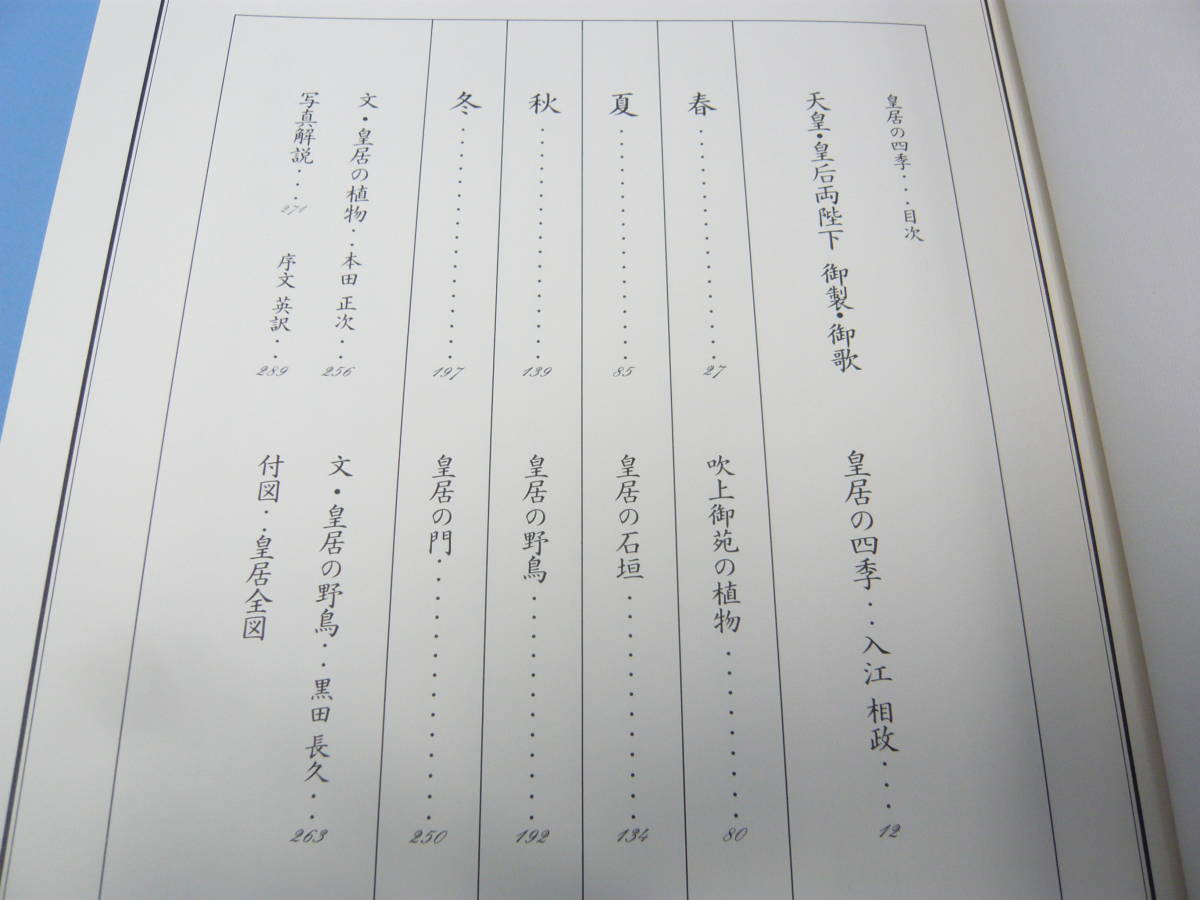 皇居の四季・・・目次
天皇・皇后両陛下 御製・御歌
皇居の四季・・入江 相政・・・12
春・・・・・・・・・・27
吹上御苑の植物・・・・・・・80
夏・・・・・・・・・・85
皇居の石垣・・・・・・・・・134
秋・・・・・・・・・・139
皇居の野鳥・・・・・・・・・192
冬・・・・・・・・・・197
皇居の門・・・・・・・・・・250
文・皇居の植物・・本田 正次・・256
文・皇居の野鳥・・黒田 長久・・263
写真解説・・・271
序文 英訳・・289
付図・・皇居全図